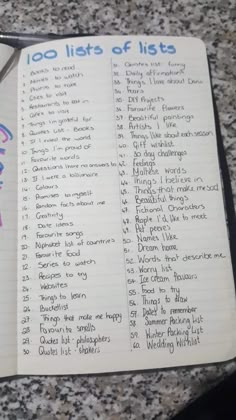 100 lists of lists
1. Books to read
2. Movies to watch
3. Places to
4. Cities to visit
5. Restaurants to eat in
6. Cafes to visit
7. Things I'm grateful for
8. Quotes list - Books
9. If I ruled the world
10. Things I'm proud of
11. Favourite words
12. Questions I have no answers to
13. If I were a billionaire
14. Colours
15. Promises to myself
16. Random facts about me
17. Creativity
18. Date ideas
19. Favourite songs
20. Alphabet list of countries
21. Favourite food
22. Series to watch
23. Recipes to try
24. Websites
25. Things to learn
26. Bucketlist
27. Things that make me happy
28. Favourite smells
29. Quotes list - philosophers
30. Quotes list -
31. Quotes list - funny
32. Daily affirmations
33. Things I love about
34. Fears
35. DIY Projects
36. Favourite flowers
37. Beautiful paintings
38. Artists I like
39. Things I like about each season
40. Gift wishlist
41. 30 day challenges
42. Feelings
43. words
44. Things I believe in
45. Things that make me sad
46. Beautiful things
47. Fictional Characters
48. People I'd like to meet
49. Pet peeves
50. Names I like
51. Dream home
52. Words that describe me
53. Worry list
54. Ice cream flavours
55. Food to try
56. Things to draw
57. Dates to remember
58. Summer Packing List
59. Winter Packing List
60. Wedding Wishlist